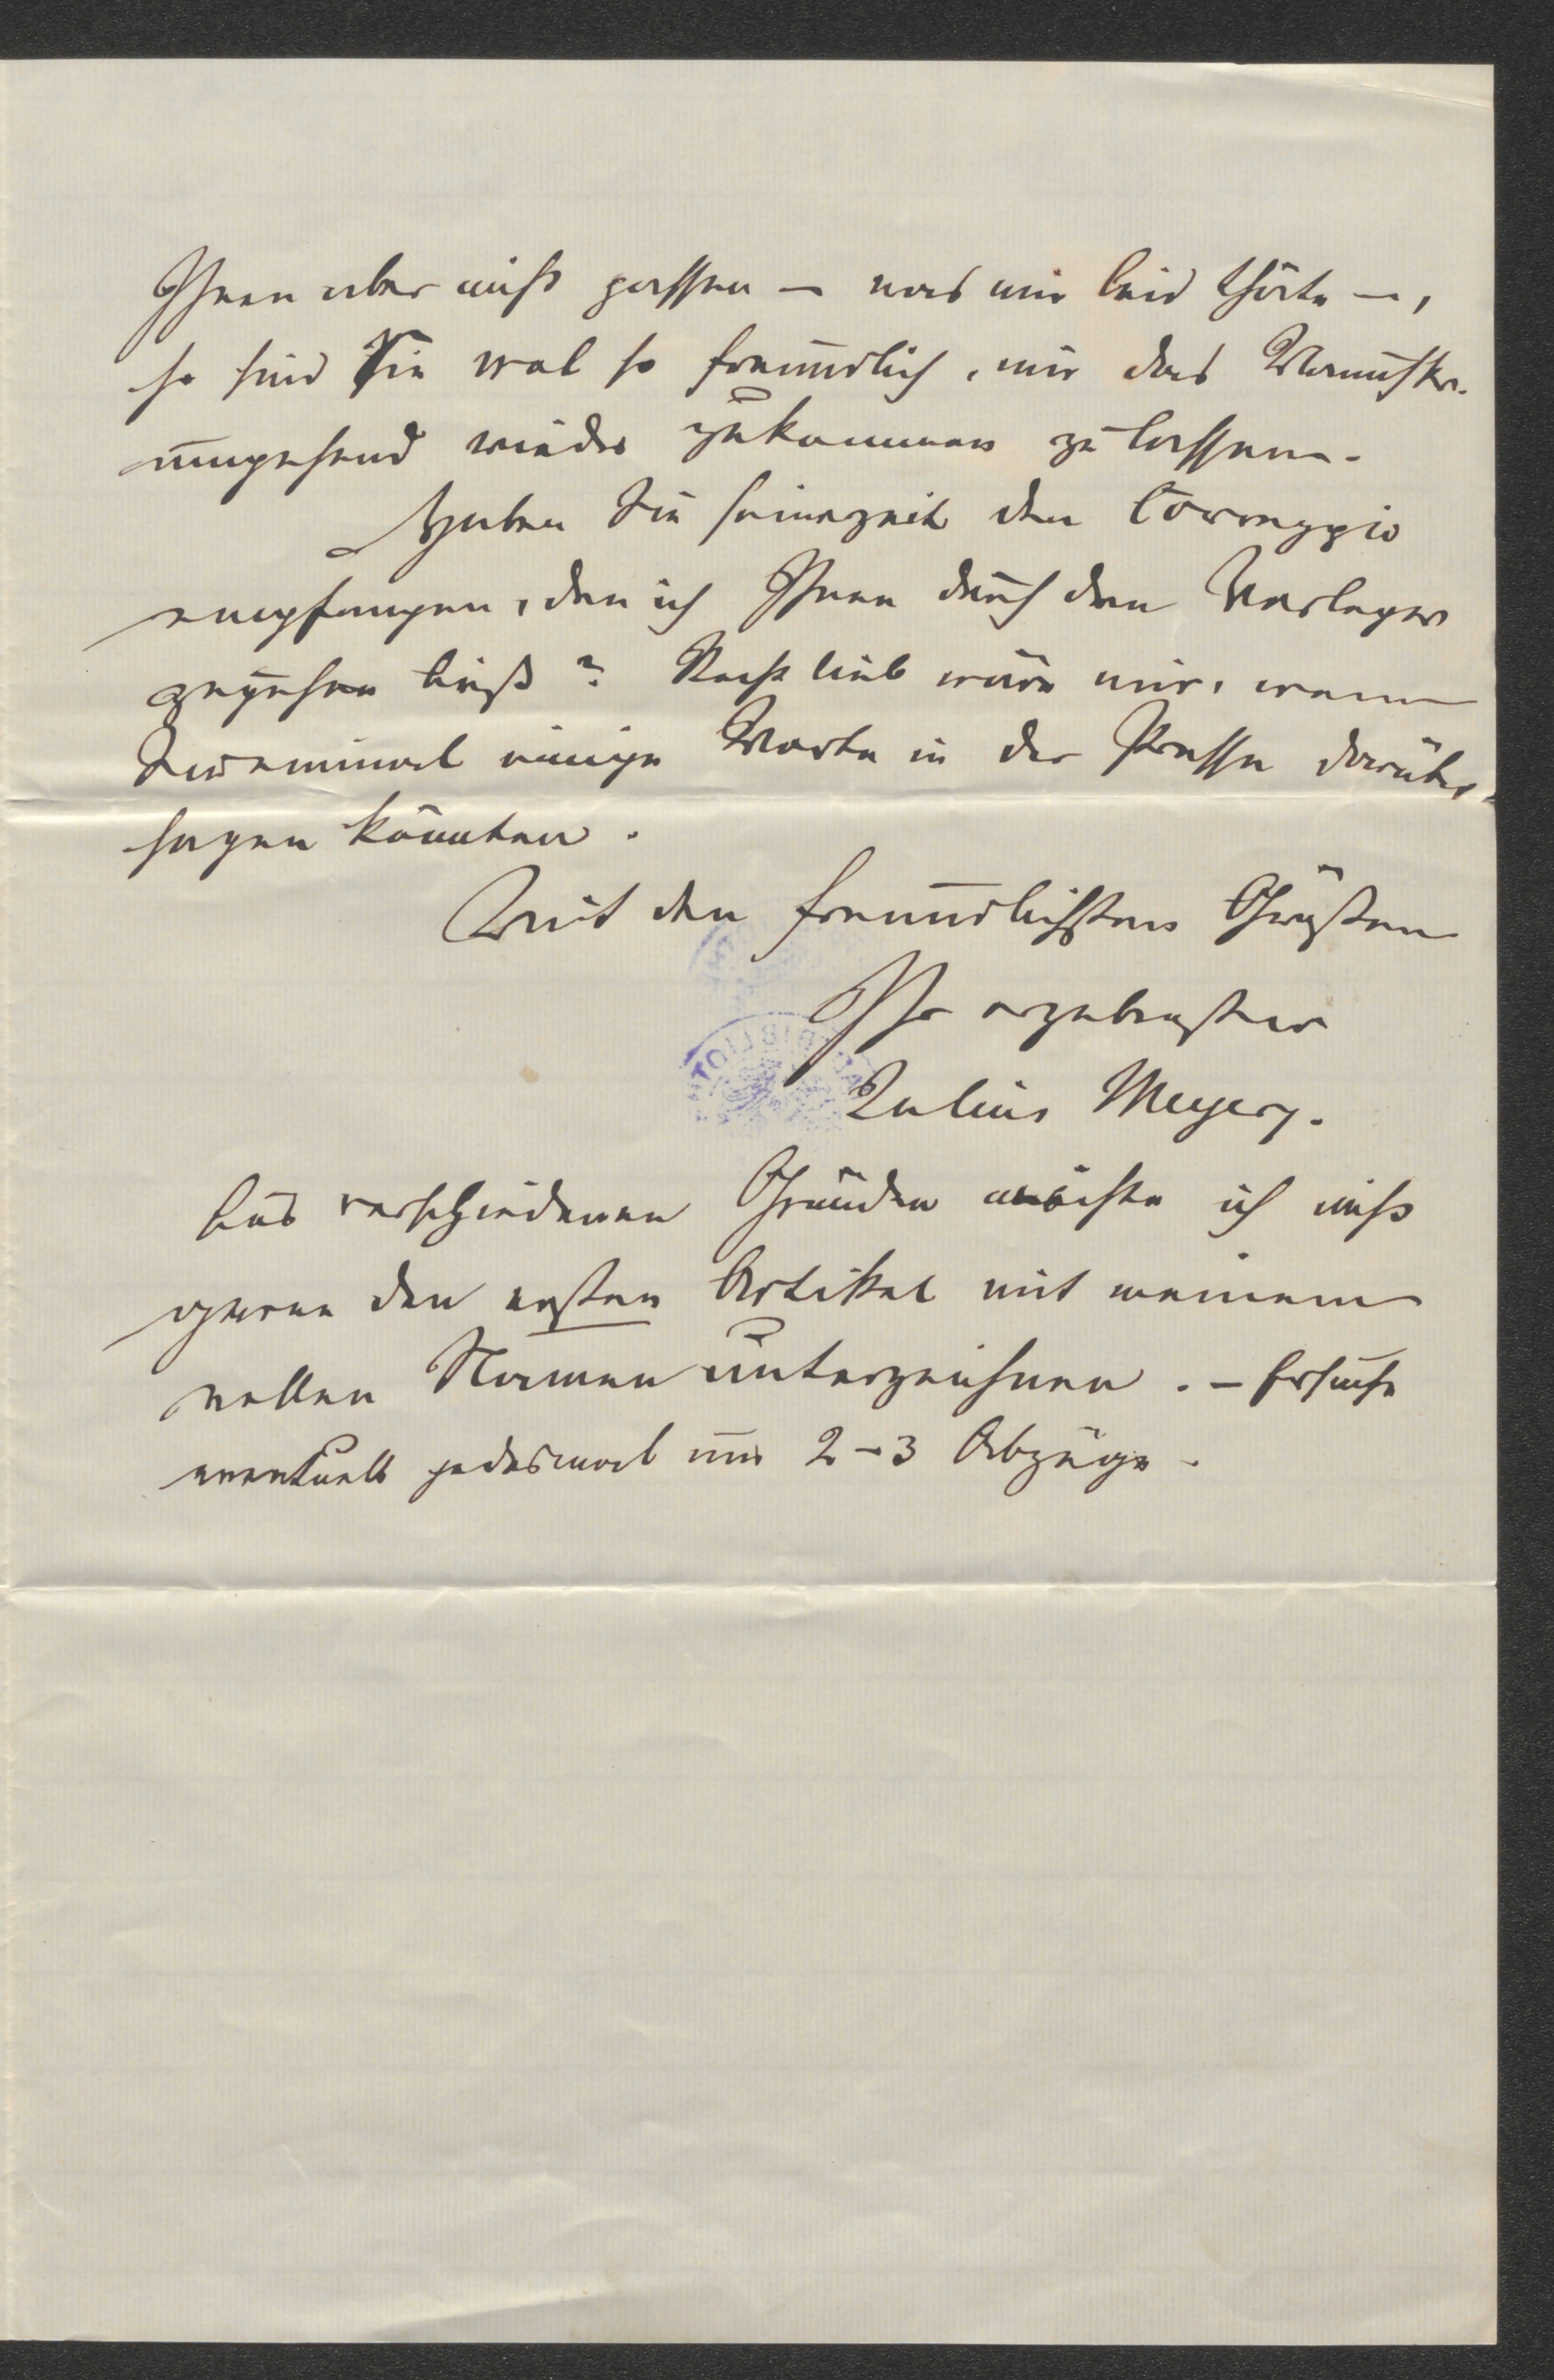 Ihnen aber nicht passen – was mir leid thäte –,
so sind Sie wol so freundlich, mir das Manuskr.
umgehend wieder zukommen zu lassen.
Haben Sie seinerzeit den Correggio
empfangen, den ich Ihnen durch den Verleger
zugehen ließ? Recht lieb wäre mir, wenn
Sie einmal einige Worte in der Presse darüber
sagen könnten.
Mit den freundlichsten Grüßen
Ihr ergebenster
Julius Meyer.
Aus verschiedenen Gründen möchte ich nicht
gerne den ersten Artikel mit meinem
vollen Namen unterzeichnen. – Ersuche
eventuell jedesmal um 2–3 Abzüge.